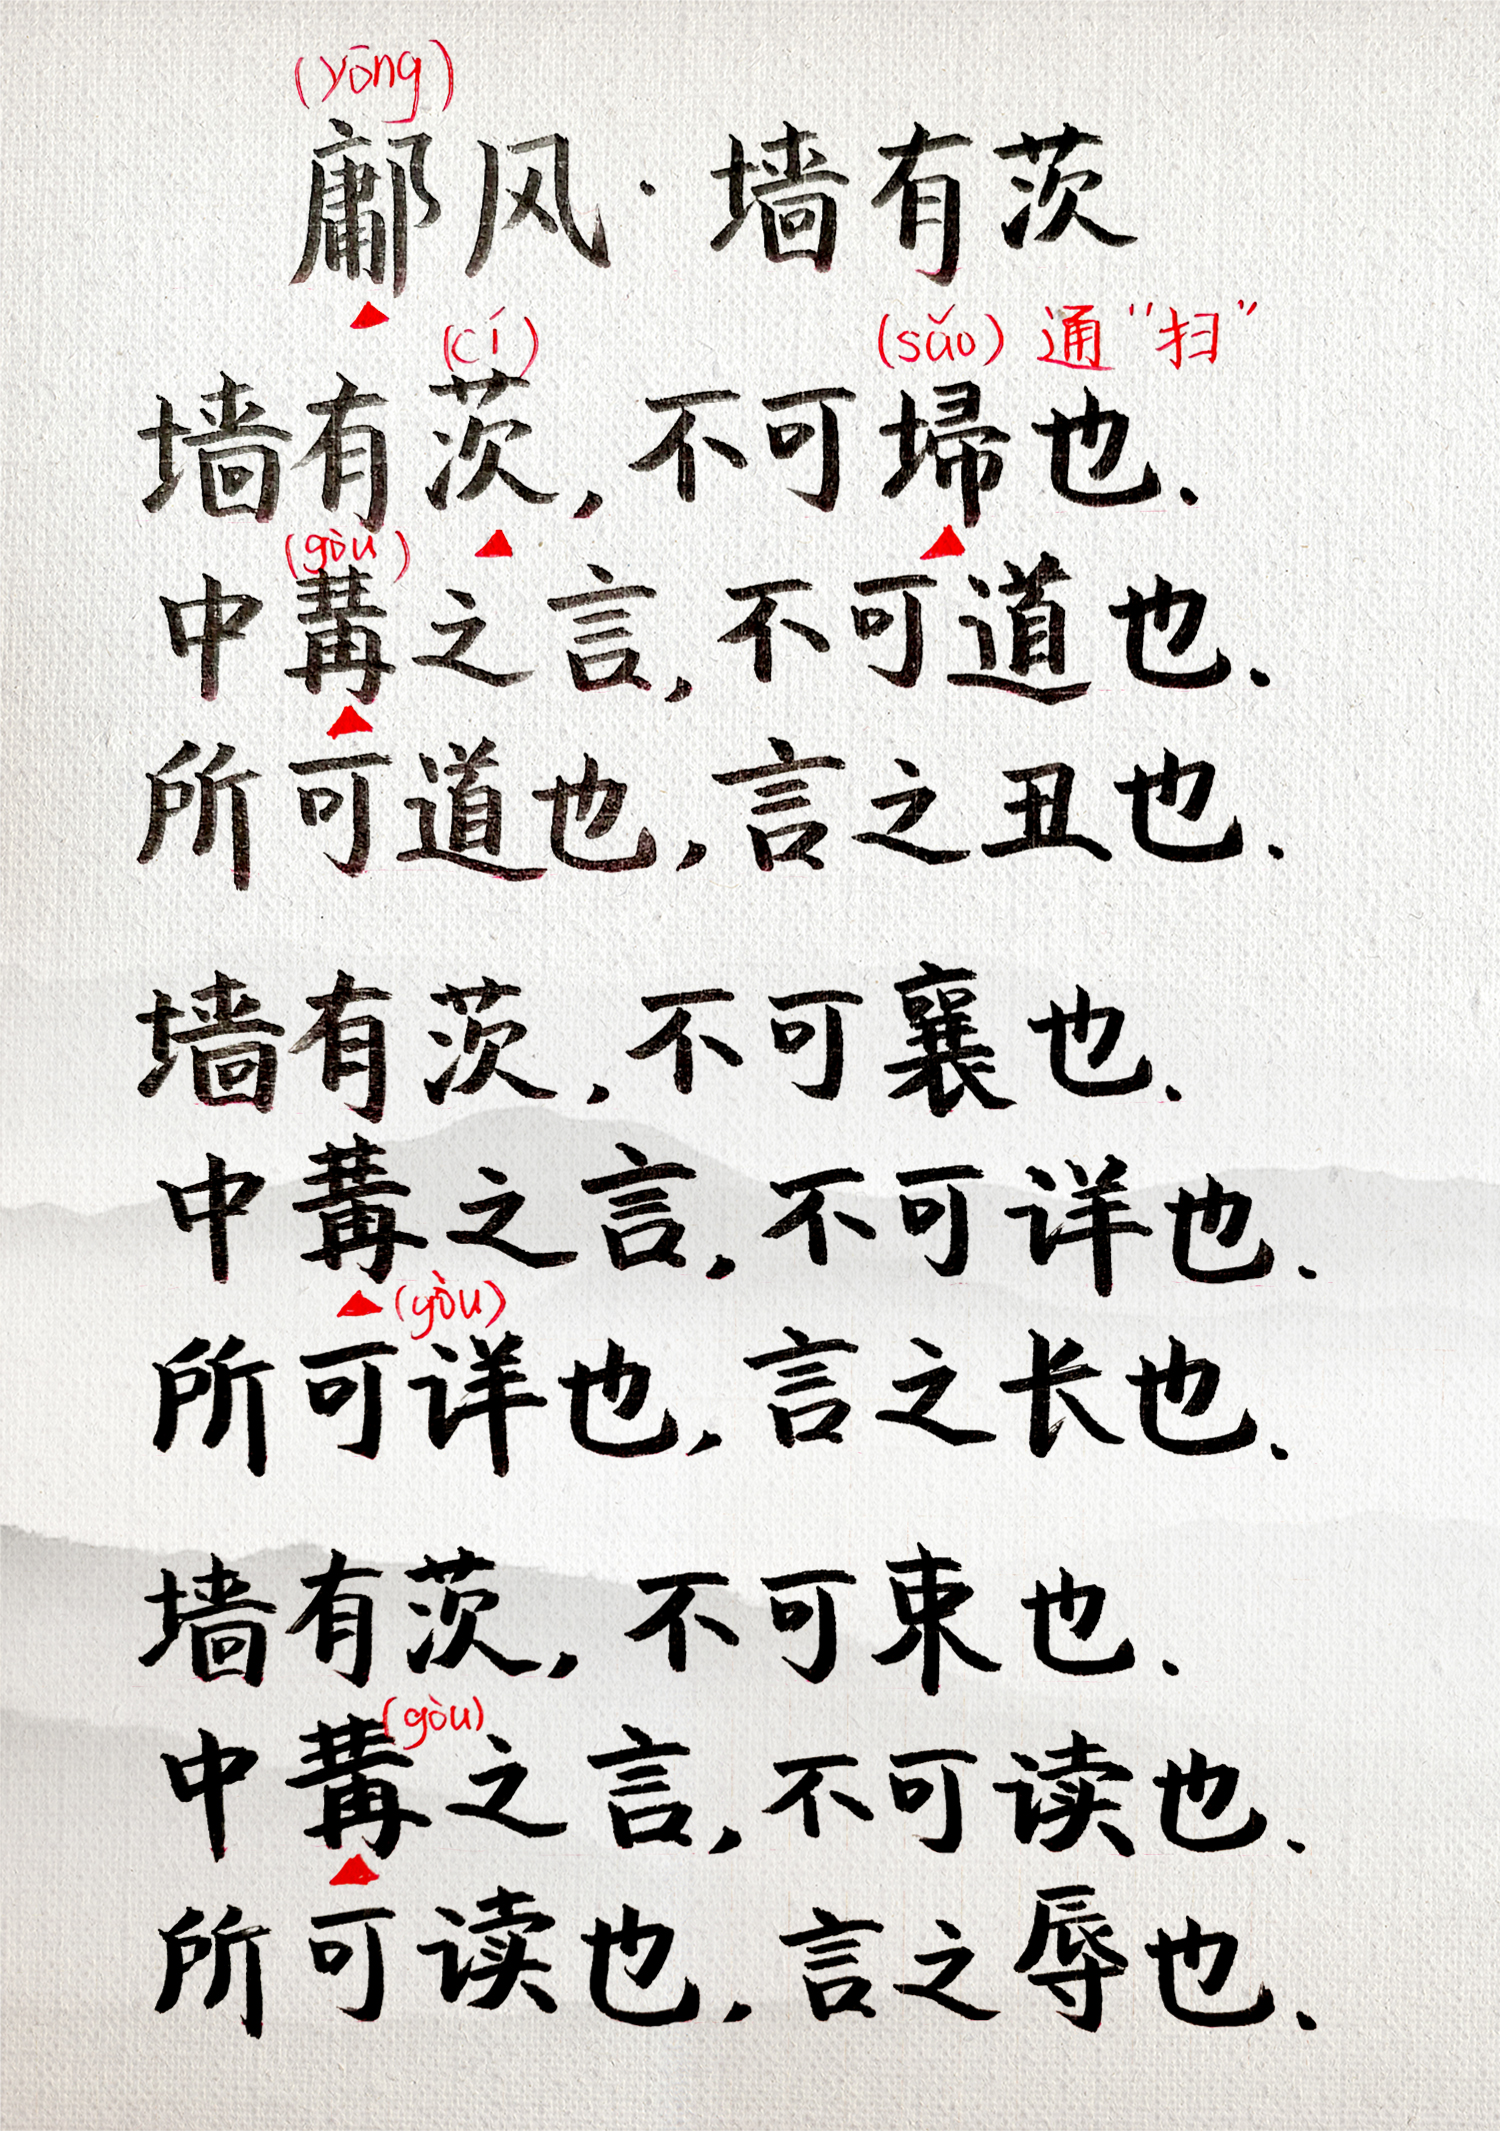 (yōng)
鄘风·墙有茨
(cí) (sǎo) 通“扫”
墙有茨,不可埽也.
(gòu)
中冓之言,不可道也.
所可道也,言之丑也.
墙有茨,不可襄也.
中冓之言,不可详也.
(gòu)
所可详也,言之长也.
墙有茨,不可束也.
(gòu)
中冓之言,不可读也.
所可读也,言之辱也.